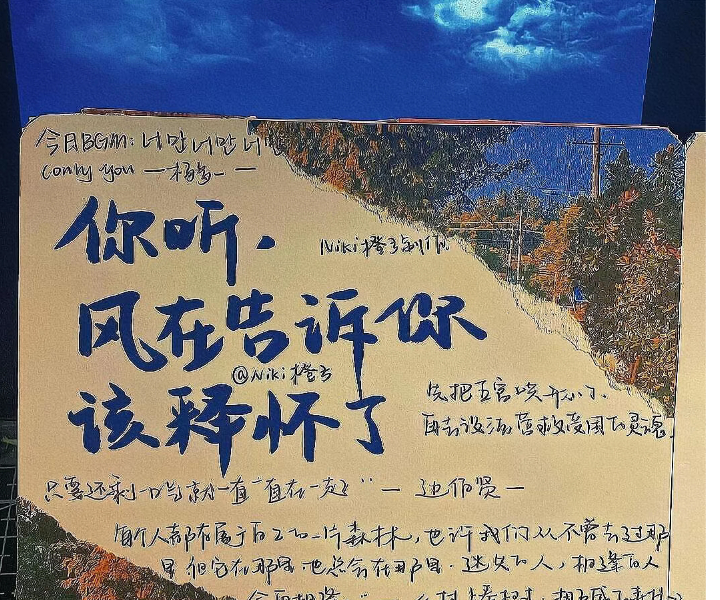 今日BGM: 너만 너만 너만
only you
你听，
Niki橙子制作
风在告诉你
@Niki橙子
该释怀了
先把五官唤开心了、
再去设法营救受困的灵魂
只要还剩一口气就一直“直在一起” — 边伯贤 —
每个人都有属于自己的一片森林，也许我们从不曾去过那
里 但它在那里 也总会在那里. 迷失的人，相逢的人
会再相逢